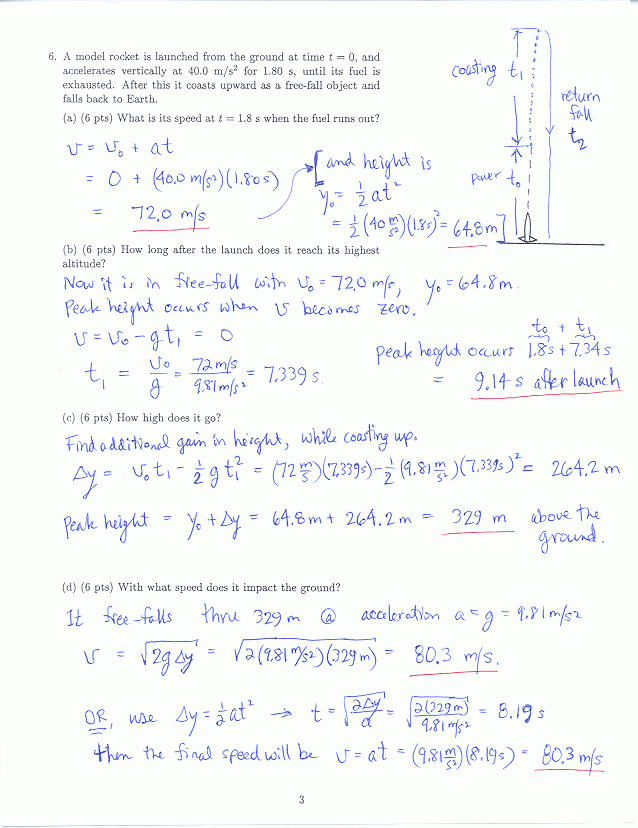 6. A model rocket is launched from the ground at time t = 0, and
accelerates vertically at 40.0 m/s² for 1.80 s, until its fuel is
exhausted. After this it coasts upward as a free-fall object and
falls back to Earth.
coasting t₁
return
fall
t₂
power t₀
(a) (6 pts) What is its speed at t = 1.8 s when the fuel runs out?
v = v₀ + at
= 0 + (40.0 m/s²)(1.80 s)
= 72.0 m/s
[and height is
y₀ = ½ at²
= ½ (40 m/s²)(1.8s)² = 64.8 m]
(b) (6 pts) How long after the launch does it reach its highest
altitude?
Now it is in free-fall with v₀ = 72.0 m/s, y₀ = 64.8 m.
Peak height occurs when v becomes zero.
v = v₀ - gt₁ = 0
t₁ = v₀/g = 72 m/s / 9.81 m/s² = 7.339 s
t₀ + t₁
peak height occurs 1.8s + 7.34 s
= 9.14 s after launch
(c) (6 pts) How high does it go?
Find additional gain in height, while coasting up.
Δy = v₀t₁ - ½ g t₁² = (72 m/s)(7.339s) - ½ (9.81 m/s²)(7.339s)² = 264.2 m
Peak height = y₀ + Δy = 64.8 m + 264.2 m = 329 m above the
ground.
(d) (6 pts) With what speed does it impact the ground?
It free-falls thru 329 m @ acceleration a = g = 9.81 m/s²
v = √2gΔy = √2(9.81 m/s²)(329 m) = 80.3 m/s.
OR, use Δy = ½ at² → t = √2Δy/a = √2(329m)/9.81 m/s² = 8.19 s
then the final speed will be v = at = (9.81 m/s²)(8.19s) = 80.3 m/s
3